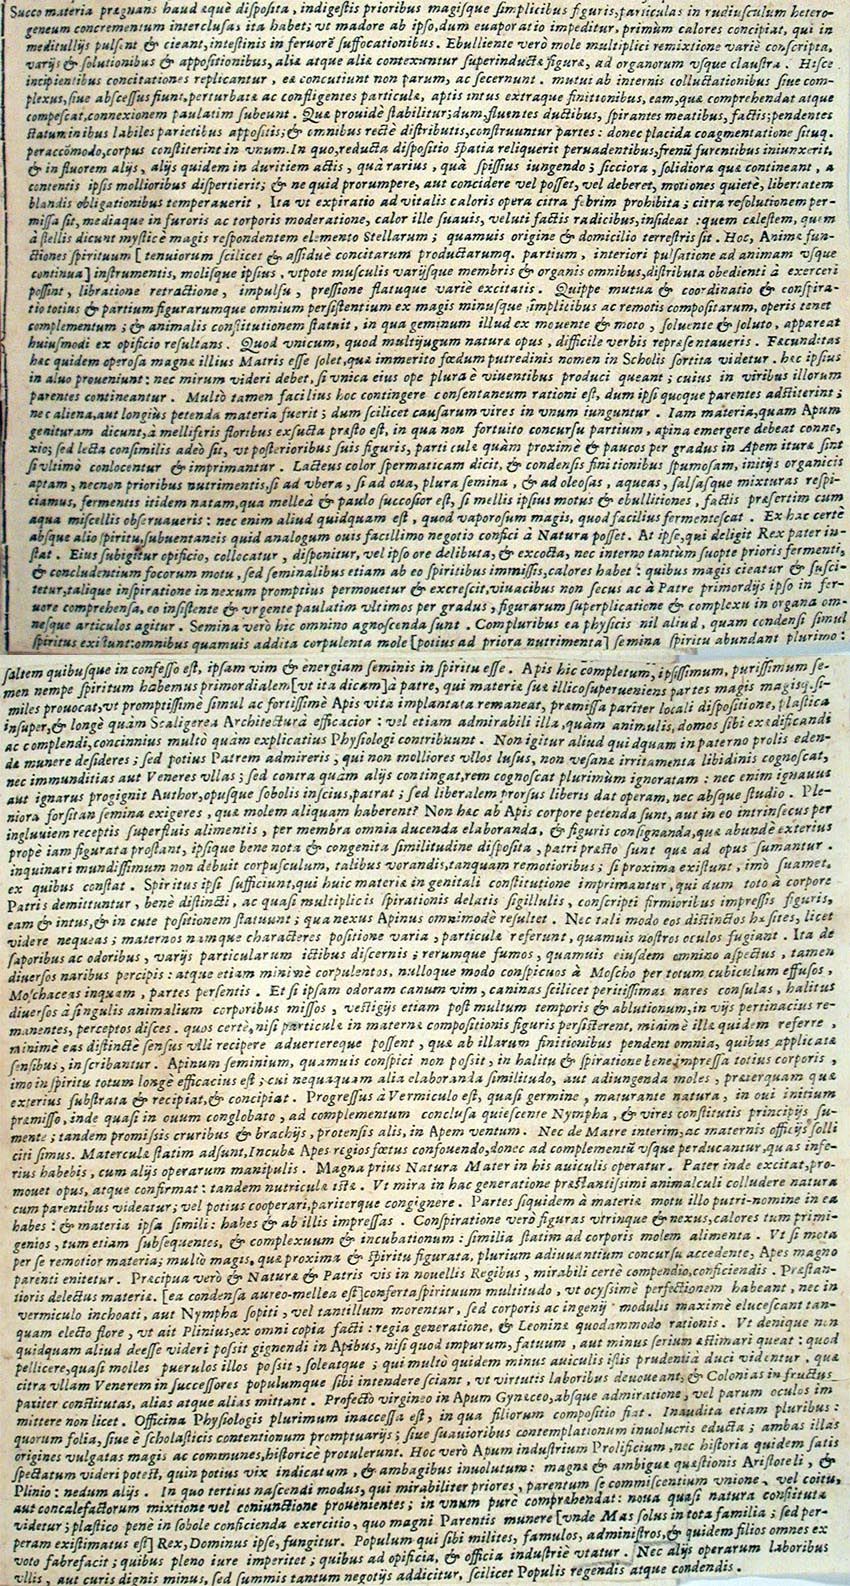 Succo materia prægnans haud æquè disposita, indigestis prioribus magisque simplicibus figuris, particulas in rudiusculum hetero-
geneum concrementum interclusas ita habet; vt madore ab ipso, dum euaporatio impeditur, primùm calores concipiat, qui in
meditullijs pulsent & cieant, intestinis in feruorẽ suffocationibus. Ebulliente verò mole multiplici remixtione variè conscripta,
varijs & solutionibus & appositionibus, aliæ atque aliæ contexuntur superinductæ figuræ, ad organorum vsque claustra. Hisce
incipientibus concitationes replicantur, eæ concutiunt non parum, ac secernunt. mutuæ ab internis colluctationibus siue com-
plexus, siue abscessus fiunt, perturbatæ ac confligentes particulæ, aptis intus extraque finitionibus, eam, quæ comprehendat atque
compescat, connexionem paulatim subeunt. Quæ prouidè stabilitur; dum, fluentes ductibus, spirantes meatibus, factis; pendentes
statuminibus labiles parietibus appositis; & omnibus rectè distributis, construuntur partes: donec placida coagmentatione situq.
peraccõmodo, corpus constiterint in vnum. In quo, reducta dispositio spatia reliquerit peruadentibus, frenũ furentibus iniunxerit,
& in fluorem alijs, alijs quidem in duritiem actis, quà rarius, quà spissius iungendo; sicciora, solidiora quæ contineant, a
contentis ipsis mollioribus dispertierit; & ne quid prorumpere, aut concidere vel posset, vel deberet, motiones quietè, libertatem
blandis obligationibus temperauerit, Ita vt expiratio ad vitalis caloris opera citra febrim prohibita; citra resolutionem per-
missa sit, mediaque in furoris ac torporis moderatione, calor ille suauis, veluti factis radicibus, insideat: quem cælestem, quem
à stellis dicunt mysticè magis respondentem elemento Stellarum; quamuis origine & domicilio terrestris sit. Hoc, Animæ fun-
ctiones spirituum [tenuiorum scilicet & assiduè concitarum productarumq. partium, interiori pulsatione ad animam vsque
continua] instrumentis, molisque ipsius, vtpote musculis varijsque membris & organis omnibus, distributa obedienti à exerceri
possint, libratione retractione, impulsu, pressione flatuque variè excitatis. Quippe mutua & coordinatio & conspira-
tio totius & partium figurarumque omnium persistentium ex magis minusque implicitis ac remotis compositarum, operis tenet
complementum; & animalis constitutionem statuit, in qua geminum illud ex mouente & moto, soluente & soluto, appareat
huiusmodi ex opificio resultans. Quod vnicum, quod multijugum naturæ opus, difficile verbis repræsentaueris. Fæcunditas
hæc quidem operosa magnæ illius Matris esse solet, quæ immerito fœdum putredinis nomen in Scholis sortita videtur. hæc ipsius
in aluo proueniunt: nec mirum videri debet, si vnica eius ope plura è viuentibus produci queant; cuius in viribus illorum
parentes contineantur. Multò tamen facilius hoc contingere consentaneum rationi est, dum ipsi quoque parentes adstiterint;
nec aliena, aut longiùs petenda materia fuerit; dum scilicet causarum vires in vnum iunguntur. Iam materia, quam Apum
genituram dicunt, à melliferis floribus exsucta præsto est, in qua non fortuito concursu partium, apina emergere debeat conne,
xio; sed lecta consimilis adeò sit, vt posterioribus suis figuris, particulæ quàm proximè & paucos per gradus in Apem ituræ sint
si vltimò conlocentur & imprimantur. Lacteus color spermaticam dicit, & condensis finitionibus spumosam, initijs organicis
aptam, necnon prioribus nutrimentis, si ad vbera, si ad oua, plura semina, & ad oleosas, aqueas, salsasque mixturas respi-
ciamus, fermentis itidem natam, quæ melleâ & paulo succosior est, si mellis ipsius motus & ebullitiones, factis præsertim cum
aqua miscellis obseruaueris: nec enim aliud quidquam est, quod vaporosum magis, quod facilius fermentescat. Ex hac certè
absque alio spiritu, subuentaneis quid analogum ouis facillimo negotio confici à Natura posset. At ipse, qui deligit Rex pater in-
stat. Eius subigitur opificio, collocatur, disponitur, vel ipso ore delibuta, & excocta, nec interno tantùm suopte prioris fermenti,
& concludentium focorum motu, sed seminalibus etiam ab eo spiritibus immissis, calores habet: quibus magis cieatur & susci-
tetur, talique inspiratione in nexum promptius permouetur & excrescit, viuacibus non secus ac à Patre primordijs ipso in fer-
uore comprehensa, eo insistente & vrgente paulatim vltimos per gradus, figurarum superplicatione & complexu in organa om-
nesque articulos agitur. Semina verò hic omnino agnoscenda sunt. Compluribus ea physicis nil aliud, quam condensi simul
spiritus existunt: omnibus quamuis addita corpulenta mole [potius ad priora nutrimenta] semina spiritu abundant plurimo:
saltem quibusque in confesso est, ipsam vim & energiam seminis in spiritu esse. Apis hic completum, ipsissimum, purissimum se-
men nempe spiritum habemus primordialem [vt ita dicam] à patre, qui materiæ suæ illico superueniens partes magis magisq. si-
miles prouocat, vt promptissimè simul ac fortissimè Apis vita implantata remaneat, præmissa pariter locali dispositione, plastica
insuper, & longè quàm Scaligerea Architecturâ efficacior: vel etiam admirabili illa, quàm animulis, domos sibi exædificandi
ac complendi, concinnius multò quàm explicatius Physiologi contribuunt. Non igitur aliud quidquam in paterno prolis eden-
dæ munere desideres; sed potius Patrem admireris; qui non molliores vllos lusus, non vesana irritamenta libidinis cognoscat,
nec immunditias aut Veneres vllas; sed contra quàm alijs contingat, rem cognoscat plurimùm ignoratam: nec enim ignauus
aut ignarus progignit Author, opusque sobolis inscius, patrat; sed liberalem prorsus liberis dat operam, nec absque studio. Ple-
niora forsitan semina exigeres, quæ molem aliquam haberent? Non hæc ab Apis corpore petenda sunt, aut in eo intrinsecus per
ingluuiem receptis superfluis alimentis, per membra omnia ducenda elaboranda, & figuris consignanda, quæ abundè exterius
propè iam figurata prostant, ipsique bene nota & congenita similitudine disposita, patri præsto sunt quæ ad opus sumantur.
inquinari mundissimum non debuit corpusculum, talibus vorandis, tanquam remotioribus; si proxima existunt, imò suamet.
ex quibus constat. Spiritus ipsi sufficiunt, qui huic materiæ in genitali constitutione imprimantur, qui dum toto à corpore
Patris demittuntur, benè distincti, ac quasi multiplicis spirationis delatis sigillulis, conscripti firmioribus impressis figuris,
eam & intus, & in cute positionem statuunt; qua nexus Apinus omnimodè resultet. Nec tali modo eos distinctos hæsites, licet
videre nequeas; maternos namque characteres positione varia, particulæ referunt, quamuis nostros oculos fugiant. Ita de
saporibus ac odoribus, varijs particularum ictibus discernis; rerumque fumos, quamuis eiusdem omnino aspectus, tamen
diuersos naribus percipis: atque etiam minimè corpulentos, nulloque modo conspicuos à Moscho per totum cubiculum effusos,
Moschaceas inquam, partes persentis. Et si ipsam odoram canum vim, caninas scilicet peritissimas nares consulas, halitus
diuersos à singulis animalium corporibus missos, vestigijs etiam post multum temporis & ablutionum, in vijs pertinacius re-
manentes, perceptos disces. quos certè, nisi particulæ in maternæ compositionis figuris persisterent, minimè illæ quidem referre,
minimè eas distinctè sensus vlli recipere aduertereque possent, quæ ab illarum finitionibus pendent omnia, quibus applicatæ
sensibus, inscribantur. Apinum seminium, quamuis conspici non possit, in halitu & spiratione bene impressa totius corporis,
imo in spiritu totum longè efficacius est; cui nequaquam alia elaboranda similitudo, aut adiungenda moles, præterquam quæ
exterius substrata & recipiat, & concipiat. Progressus à Vermiculo est, quasi germine, maturante natura, in oui initium
præmisso, inde quasi in ouum conglobato, ad complementum conclusa quiescente Nympha, & vires constitutis principijs su-
mente; tandem promissis cruribus & brachijs, protensis alis, in Apem ventum. Nec de Matre interim, ac maternis officijs solli
citi simus. Materculæ statim adsunt, Incubæ Apes regios fœtus confouendo, donec ad complementũ vsque perducantur, quas infe-
rius habebis, cum alijs operarum manipulis. Magna prius Natura Mater in his auiculis operatur. Pater inde excitat, pro-
mouet opus, atque confirmat: tandem nutriculæ istæ. Vt mira in hac generatione præstantissimi animalculi colludere natura
cum parentibus videatur; vel potius cooperari, pariterque congignere. Partes siquidem à materiæ motu illo putri-nomine in ea
habes: & materia ipsa simili: habes & ab illis impressas. Conspiratione verò figuras vtrinque & nexus, calores tum primi-
genios, tum etiam subsequentes, & complexuum & incubationum: similia statim ad corporis molem alimenta. Vt si mota
per se remotior materia; multò magis, quæ proxima & spiritu figurata, plurium adiuuantium concursu accedente, Apes magno
parenti enitetur. Præcipua verò & Naturæ & Patris vis in nouellis Regibus, mirabili certè compendio, conficiendis. Præstan-
tioris delectus materiæ. [ea condensa aureo-mellea est] conferta spirituum multitudo, vt ocyssimè perfectionem habeant, nec in
vermiculo inchoati, aut Nympha sopiti, vel tantillum morentur, sed corporis ac ingenij modulis maximè elucescant tan-
quam electo flore, vt ait Plinius, ex omni copia facti: regia generatione, & Leoninæ quodammodo rationis. Vt denique non
quidquam aliud deesse videri possit gignendi in Apibus, nisi quod impurum, fatuum, aut minus serium æstimari queat: quod
pellicere, quasi molles puerulos illos possit, soleatque; qui multò quidem minus auiculis istis prudentiâ duci videntur, quæ
citra vllam Venerem in successores populumque sibi intendere sciant, vt virtutis laboribus deuoueant, & Colonias in fructus
pariter constitutas, alias atque alias mittant. Profectò virgineo in Apum Gynæceo, absque admiratione, vel parum oculos im
mittere non licet. Officina Physiologis plurimum inaccessa est, in qua filiorum compositio fiat. Inaudita etiam pluribus:
quorum folia, siue è scholasticis contentionum promptuarijs; siue suauioribus contemplationum inuolucris educta; ambas illas
origines vulgatas magis ac communes, historicè protulerunt. Hoc verò Apum industrium Prolificium, nec historia quidem satis
spectatum videri potest, quin potius vix indicatum, & ambagibus inuolutum: magnæ & ambiguæ quæstionis Aristoteli, &
Plinio: nedum alijs. In quo tertius nascendi modus, qui mirabiliter priores, parentum se commiscentium vnione, vel coitu,
aut concalefactorum mixtione vel coniunctione prouenientes; in vnum purè comprehendat: noua quasi natura constituta
videtur; plastico penè in sobole conficienda exercitio, quo magni Parentis munere [vnde Mas solus in tota familia; sed per-
peram existimatus est] Rex, Dominus ipse, fungitur. Populum qui sibi milites, famulos, administros, & quidem filios omnes ex
voto fabrefacit; quibus pleno iure imperitet; quibus ad opificia, & officia industriè vtatur. Nec alijs operarum laboribus
vllis, aut curis dignis minus, sed summis tantum negotijs addicitur, scilicet Populis regendis atque condendis.